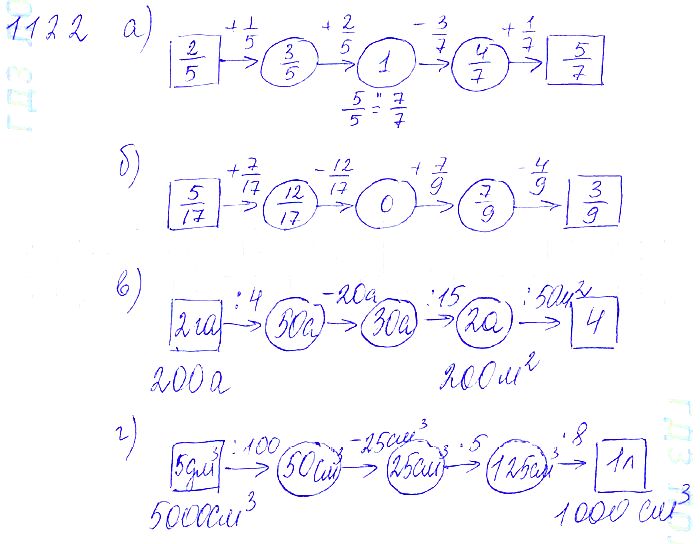 1122 а) 2/5 +1/5 → 3/5 +2/5 → 1 -3/7 → 4/7 +1/7 → 5/7
5/5 = 7/7
б) 5/17 +7/17 → 12/17 -12/17 → 0 +7/9 → 7/9 -4/9 → 3/9
в) 2га :4 → 50а -20а → 30а :15 → 2а :50м² → 4
200а 200м²
г) 5дм³ :100 → 50см³ -25см³ → 25см³ ·5 → 125см³ ·8 → 1л
5000см³ 1000 см³